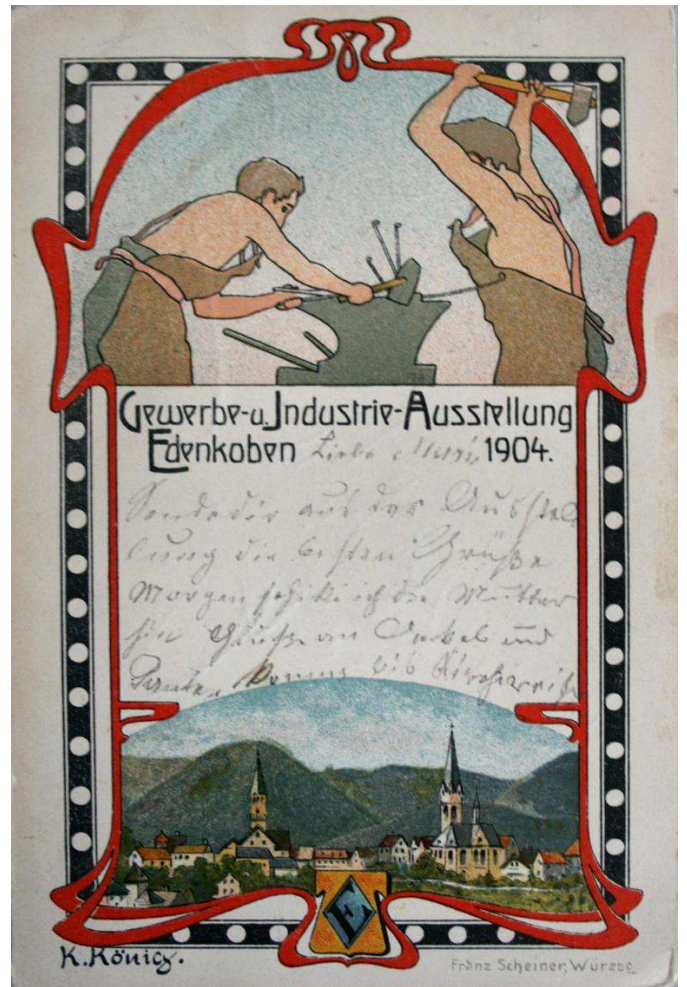 Gewerbe-u. Industrie-Ausstellung
Edenkoben Liebe 1904.
Sende dir aus der Ausstel
lung die besten Grüße
Morgen schicke ich die Mutter
hin Grüße an Onkel und
Tante. bis
E
K. König.
Franz Scheiner, Würzbg.